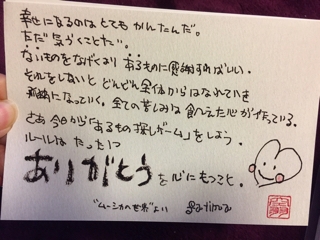 幸せになるのはとてもかんたんだ。
ただ気づくことだ。
ないものをなげくより あるものに感謝すればいい。
それをしないと どんどん全体からはなれていき
孤独になっていく。全ての苦しみは 飢えた心が作っている。
さあ 今日から「あるもの探しゲーム」をしよう。
ルールは たった1つ
ありがとうを心にもつこと。